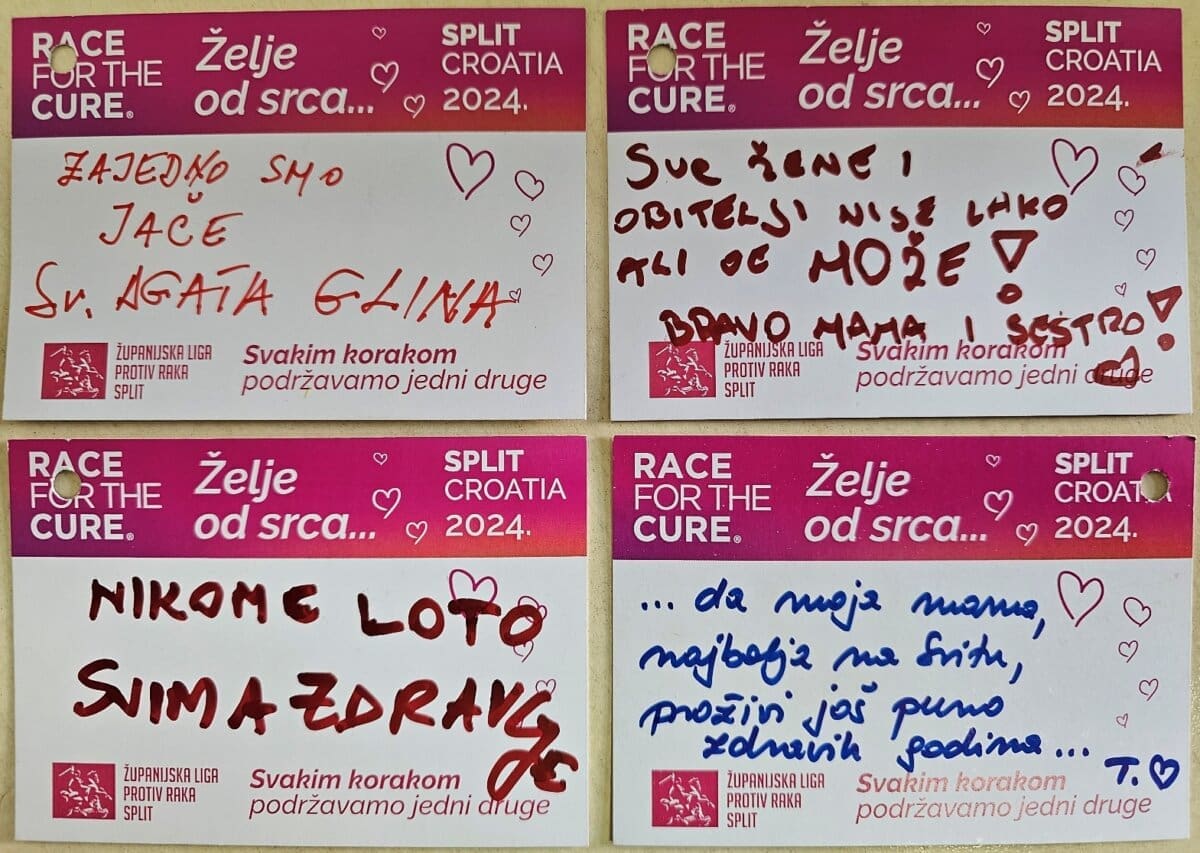 RACE
FOR THE
CURE®
Želje
od srca...
SPLIT
CROATIA
2024.
ZAJEDNO SMO
JAČE
Sv. AGATA GLINA
ŽUPANIJSKA LIGA
PROTIV RAKA
SPLIT
Svakim korakom
podržavamo jedni druge
RACE
FOR THE
CURE®
Želje
od srca...
SPLIT
CROATIA
2024.
Sve ŽENE I
OBITELJI NIJE LAKO
ALI SE MOŽE!
BRAVO MAMA I SESTRO!
ŽUPANIJSKA LIGA
PROTIV RAKA
SPLIT
Svakim korakom
podržavamo jedni druge
RACE
FOR THE
CURE®
Želje
od srca...
SPLIT
CROATIA
2024.
NIKOME LOTO
SVIMA ZDRAVJE
ŽUPANIJSKA LIGA
PROTIV RAKA
SPLIT
Svakim korakom
podržavamo jedni druge
RACE
FOR THE
CURE®
Želje
od srca...
SPLIT
CROATIA
2024.
... da moja mama,
najbolja na svitu,
proživi još puno
zdravih godina...
T.
ŽUPANIJSKA LIGA
PROTIV RAKA
SPLIT
Svakim korakom
podržavamo jedni druge